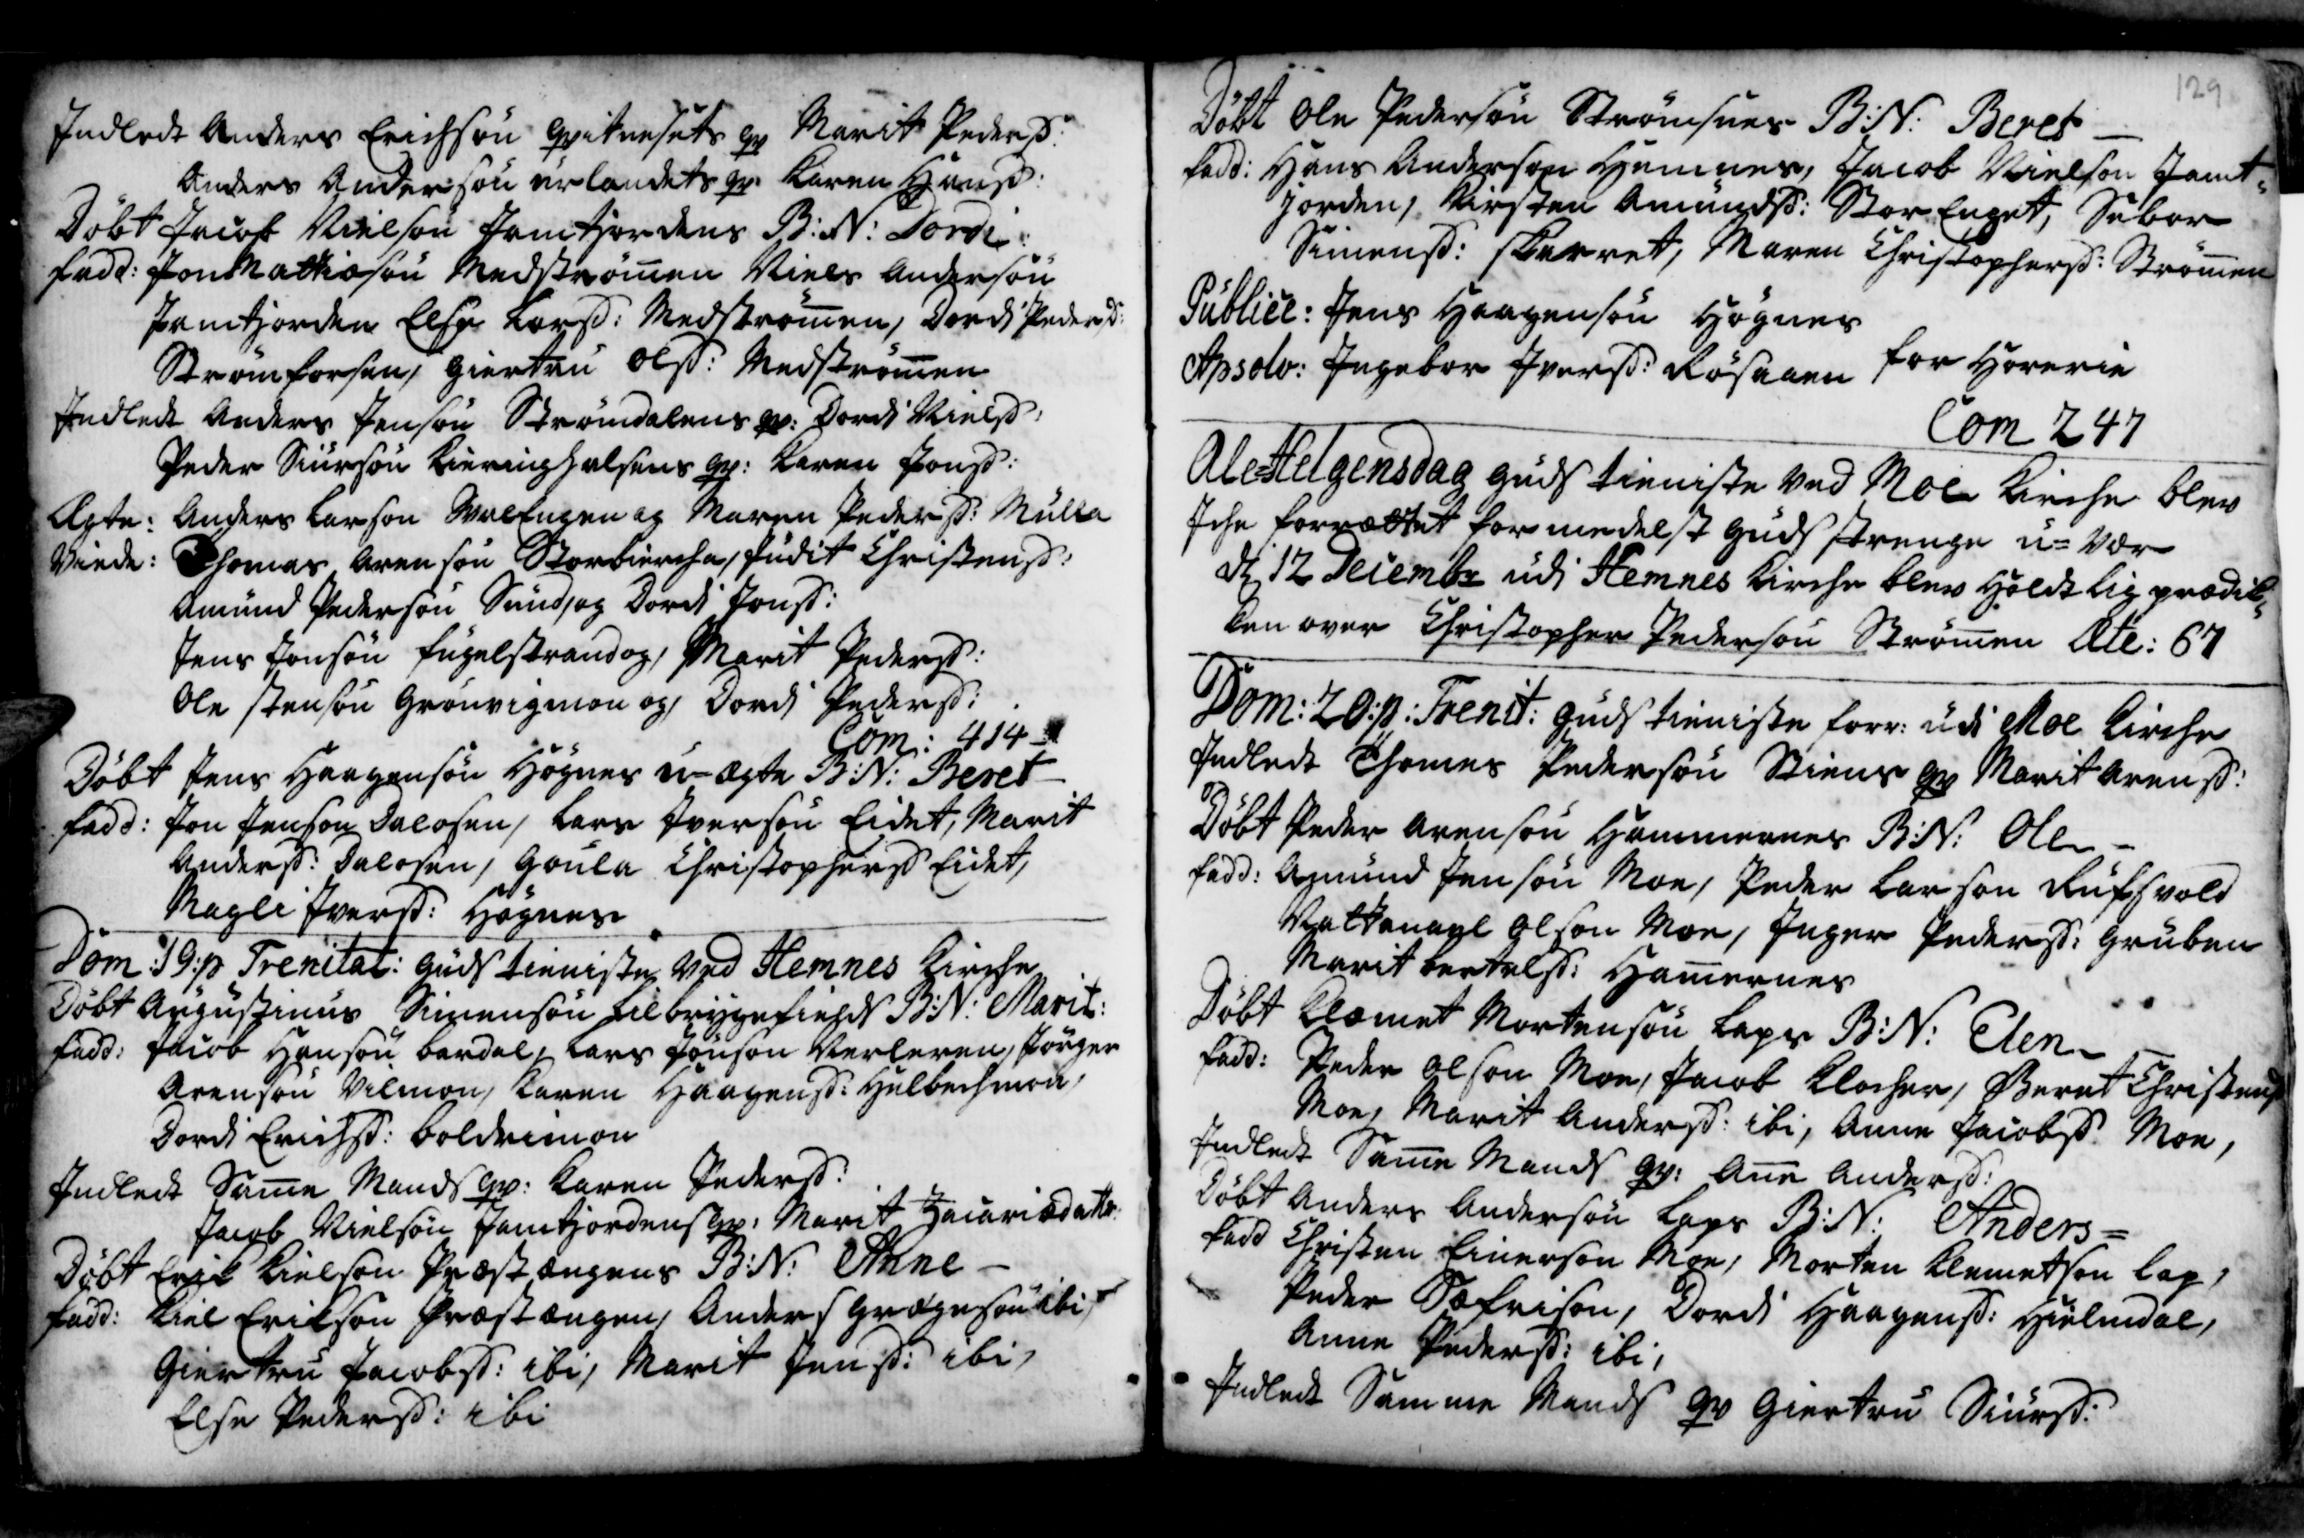 Indledt Anders Erichsøn Qvitnesets qv Marit Pederß:
Anders Andersøn urlandets qv: Karen Hansß:
Døbt Jacob Nielsøn Jamtjordens B:N: Dordi:
fadd: Jon Mathiasøn Medstrømen Niels Andersøn
Jamtjorden Else Larß: Medstrømen, Dordi Pederß:
Strømforsen, Giertru Olß: Medstrømen
Indledt Anders Jensøn Strømdalens qv: Dordi Nielß:
Peder Siursøn Kieringhalsens qv: Karen Jonß:
Ægte: Anders Larson Valengen og Maren Pederß: Mulla
Viede: Thomas Arensøn Storbiercha, Judit Christenß:
Amund Pedersøn Sund, og Dordi Jonß:
Jens Jonsøn fugelstrand og, Marit Pederß:
Ole Stensøn Grønvigmon og, Dordi Pederß:
Com: 414
Døbt Jens Haagensøn Høgnes u-ægte B:N: Beret
fadd: Jon Jenson Dalosen, Lars Iversøn Eidet, Marit
Anderß: Dalosen, Goula Christopherß Eidet,
Magli Iverß: Høgnes
Dom: 19: p Trenitat: Guds tieniste ved Hemnes Kirche
Døbt Augustinus Simensøn Lilbrygefields B:N: Marit:
fadd: Jacob Hansøn bardal, Lars Jonson Verleren, Jørgen
Arensøn Vilmon, Karen Haagenß: Hulbechmon,
Dordi Erichß: Boldermon
Indledt Same Mands qv: Karen Pederß:
Jacob Nielsøn Jamtjordens qv: Marit Zacariædatter:
Døbt Erik Kielson Præstængens B:N: Anne
fadd: Kiel Erikson Præstængen, Anders Grægesøn ibi,
Giertru Jacobß: ibi, Marit Jenß: ibi,
Else Pederß: ibi
129
Døbt Ole Pedersøn Strømsnes B:N: Beret
fadd: Hans Anderson Hemnes, Jacob Nielson Jamt-
jorden, Kirsten Amundß: Stor Enget, Sebor
Simenß: skarret, Maren Christopherß: Strømen
Publice: Jens Haagensøn Høgnes
Apsolv: Ingebor Iverß: Røsaaen for Horerie
Com 247
Ale-Helgensdag Guds tieniste ved Moe Kirche blev
Iche forrættet formedelst Guds strenge u-vær
d: 12 Decembr udi Hemnes Kirche blev holdt lig prædik-
ken over Christopher Pedersøn Strømen Æte: 67
Dom: 20: p: Trenit: Guds tieniste forr: udi Moe Kirche
Indledt Thomes Pedersøn Stiens qv Marit Arenß:
Døbt Peder Arensøn Hammernes B:N: Ole
fadd: Amund Jensøn Moe, Peder Larson Rufsvold
Nattanael Olson Moe, Inger Pederß: Gruben
Marit bertelß: Hamernes
Døbt Klemet Mortensøn Laps B:N: Elen
fadd: Peder Olson Moe, Jacob Klocher, Beret Christenß
Moe, Marit Anderß: ibi, Anne Jacobß Moe,
Indledt Same Mands qv: Ane Anderß:
Døbt Anders Andersøn Laps B:N: Anders
fadd Christen Einerson Moe, Morten Klemetson Lap,
Peder Zefrison, Dordi Haagenß: Hielmdal,
Anne Pederß: ibi,
Indledt Samme Mands qv Giertru Siurß: